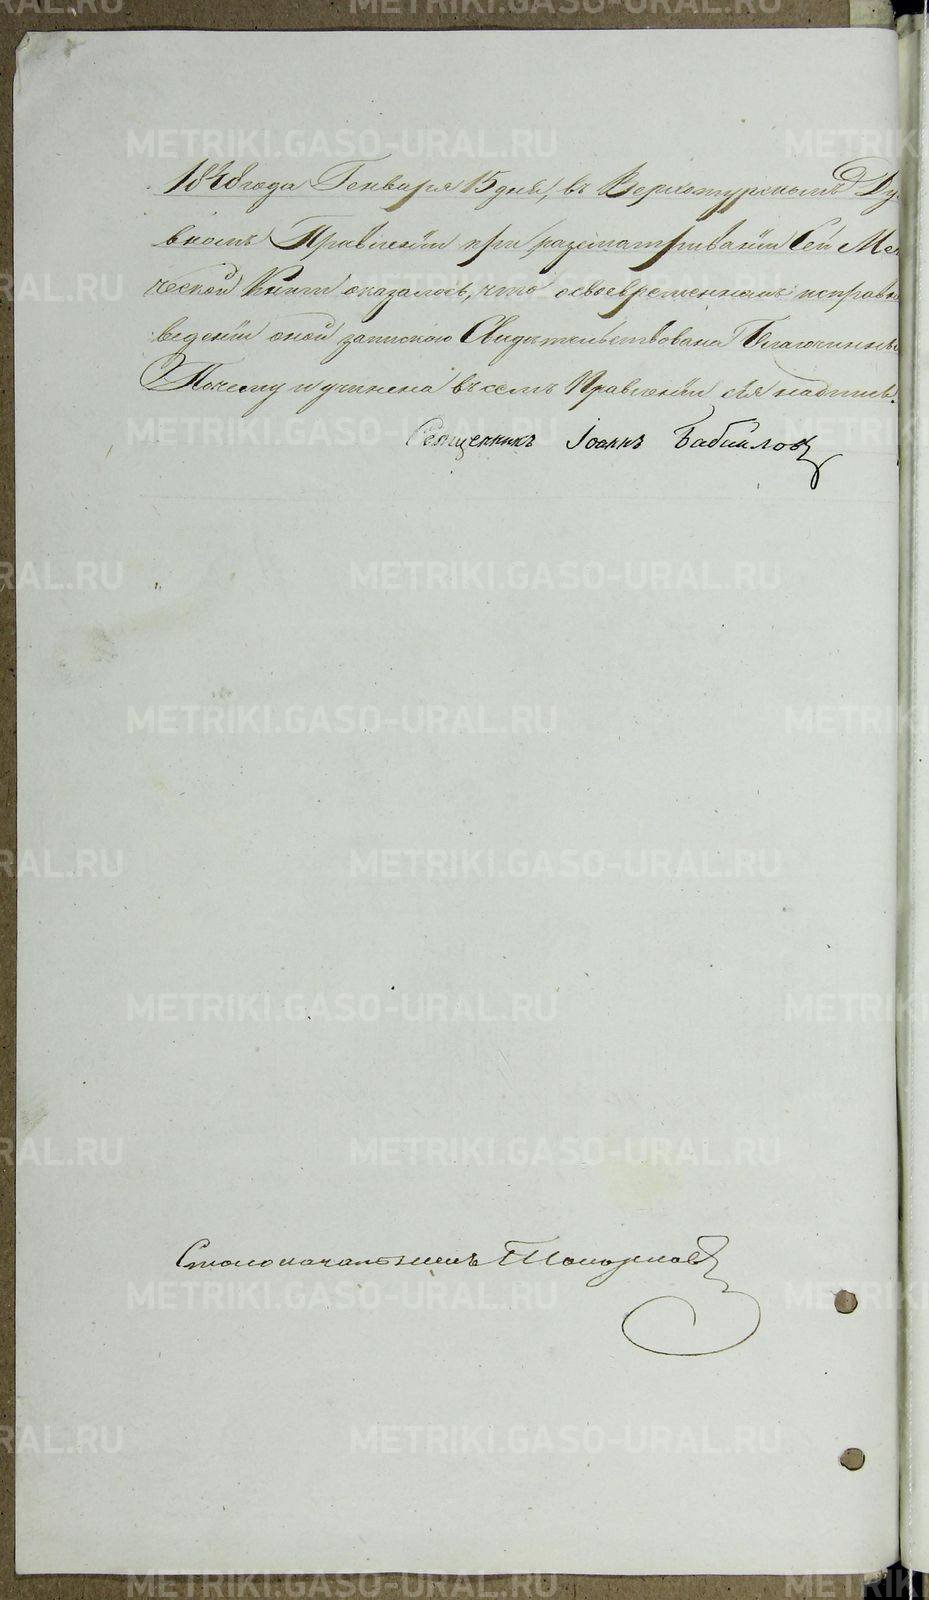 1848 года Генваря 15 дня, въ Верхотурскомъ Ду
вномъ Правленіи при разсматриваніи Сей Ме
ческой Книги оказалось, что освоевременномъ исправн
веденіи оной запискою Свидѣтельствована Благочинн
Почему и учинена въ семъ Правленіи сія надпись.
Священникъ Іоаннъ
Столоначальникъ
METRIKI.GASO-URAL.RU